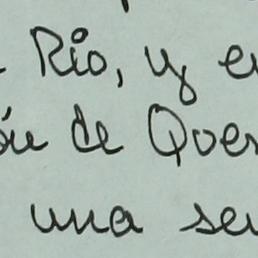 Rio, y e
ón de Quer
una se